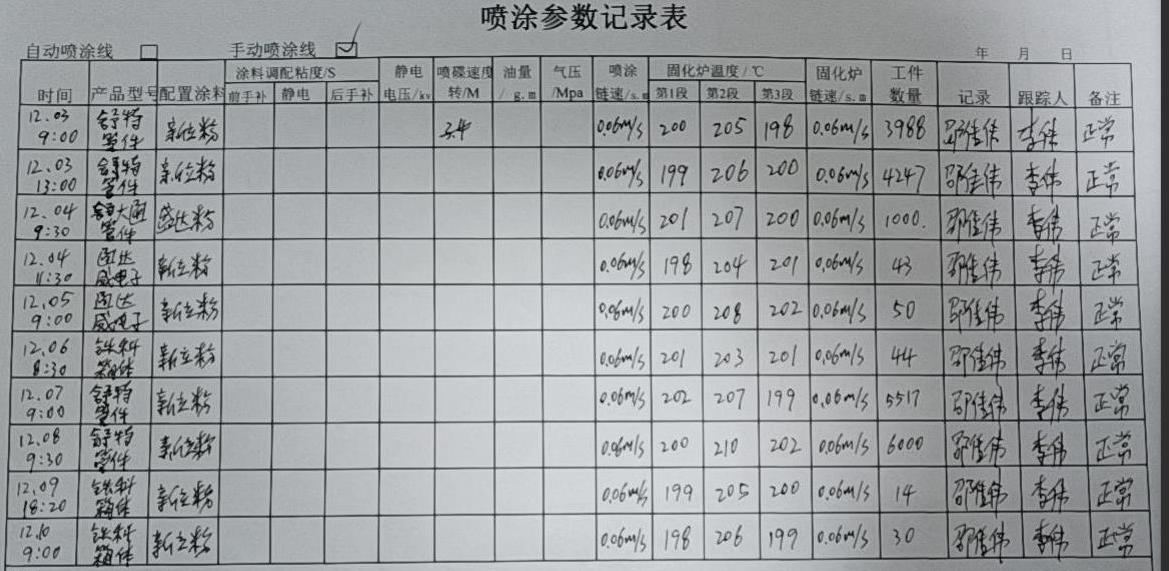 喷涂参数记录表
自动喷涂线 手动喷涂线 年 月 日
时间 产品型号 配置涂料 涂料调配粘度/S 前手补 静电 后手补 静电电压/kv 喷碟速度转/M 油量/g.m 气压/Mpa 喷涂链速/s.m 固化炉温度/℃ 第1段 第2段 第3段 固化炉链速/s.m 工件数量 记录 跟踪人 备注
12.03 9:00 舒特管件 新位粉 0.06m/s 200 205 198 0.06m/s 3988 邵佳伟 李伟 正常
12.03 13:00 舒特管件 新位粉 0.06m/s 199 206 200 0.06m/s 4247 邵佳伟 李伟 正常
12.04 9:30 管件 0.06m/s 201 207 200 0.06m/s 1000. 邵佳伟 李伟 正常
12.04 11:30 图达威电子 新立粉 0.06m/s 198 204 201 0.06m/s 43 邵佳伟 李伟 正常
12.05 9:00 图达威电子 新立粉 0.06m/s 200 208 202 0.06m/s 50 邵佳伟 李伟 正常
12.06 8:30 铁科箱体 新立粉 0.06m/s 201 203 201 0.06m/s 44 邵佳伟 李伟 正常
12.07 9:00 舒特管件 新立粉 0.06m/s 202 207 199 0.06m/s 5517 邵佳伟 李伟 正常
12.08 9:30 舒特管件 新位粉 0.06m/s 200 210 202 0.06m/s 6000 邵佳伟 李伟 正常
12.09 18:20 铁科箱体 新位粉 0.06m/s 199 205 200 0.06m/s 14 邵佳伟 李伟 正常
12.10 9:00 铁科箱体 新立粉 0.06m/s 198 206 199 0.06m/s 30 邵佳伟 李伟 正常